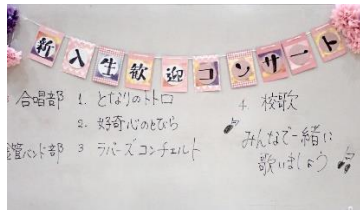 新入生歓迎コンサート
合唱部 1. となりのトトロ
2. 好奇心のとびら
バンド部 3 ラバーズコンチェルト
4. 校歌
みんなで一緒に
歌いましょう